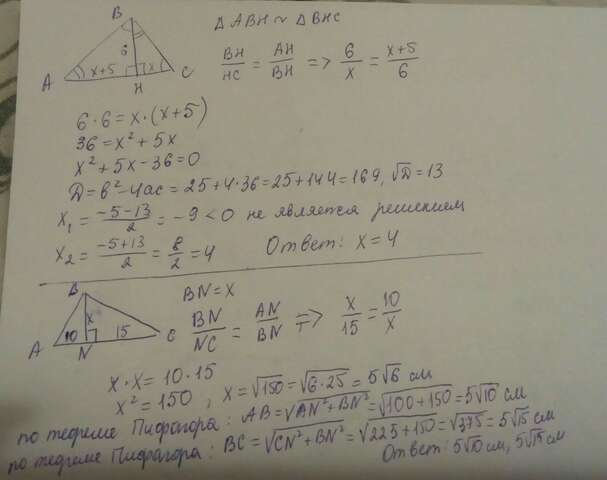 B
Δ ABH ~ Δ BHC
6
A x+5 x C
H
BH/HC = AH/BH => 6/x = x+5/6
6·6=x·(x+5)
36=x²+5x
x²+5x-36=0
D=b²-4ac=25+4·36=25+144=169, √D=13
x₁ = -5-13/2 = -9 < 0 не является решением
x₂ = -5+13/2 = 8/2 = 4 Ответ: x=4
B
BN=x
x
A 10 15 C
N
BN/NC = AN/BN => x/15 = 10/x
x·x=10·15
x²=150, x=√150=√6·25=5√6 см
по теореме Пифагора: AB=√AN²+BN²=√100+150=5√10 см
по теореме Пифагора: BC=√CN²+BN²=√225+150=√375=5√15 см
Ответ: 5√10 см, 5√15 см